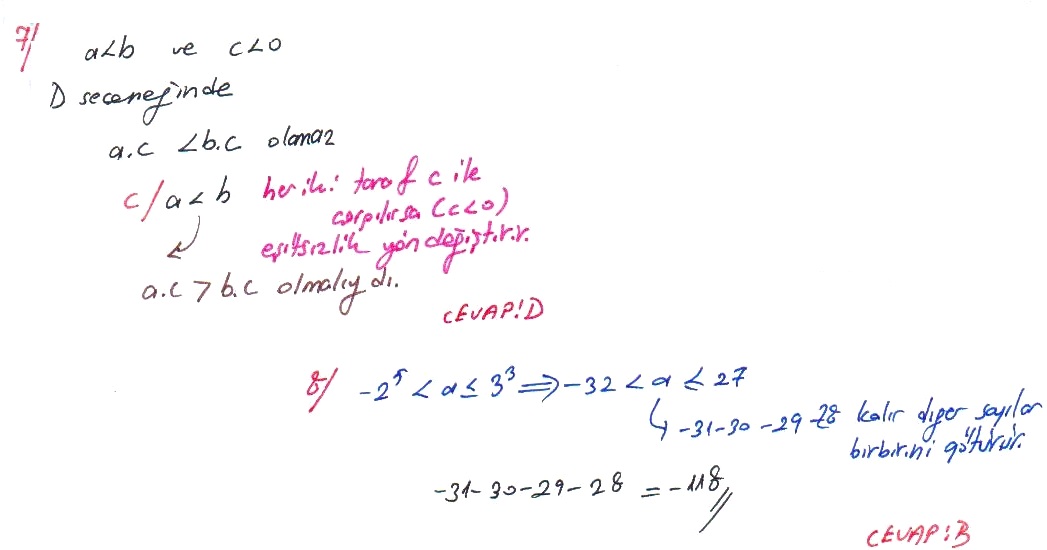 7/ a<b ve c<0
D seceneğinde
a.c <b.c olamaz
c/a<b her iki taraf c ile
çarpılırsa (c<0)
eşitsizlik yön değiştirir.
a.c > b.c olmalıydı.
CEVAP:D
8/ -2⁵ < a ≤ 3³ ⟹ -32 < a ≤ 27
↳ -31-30-29-28 kalır diğer sayılar
birbirini götürür.
-31-30-29-28 = -118//
CEVAP:B